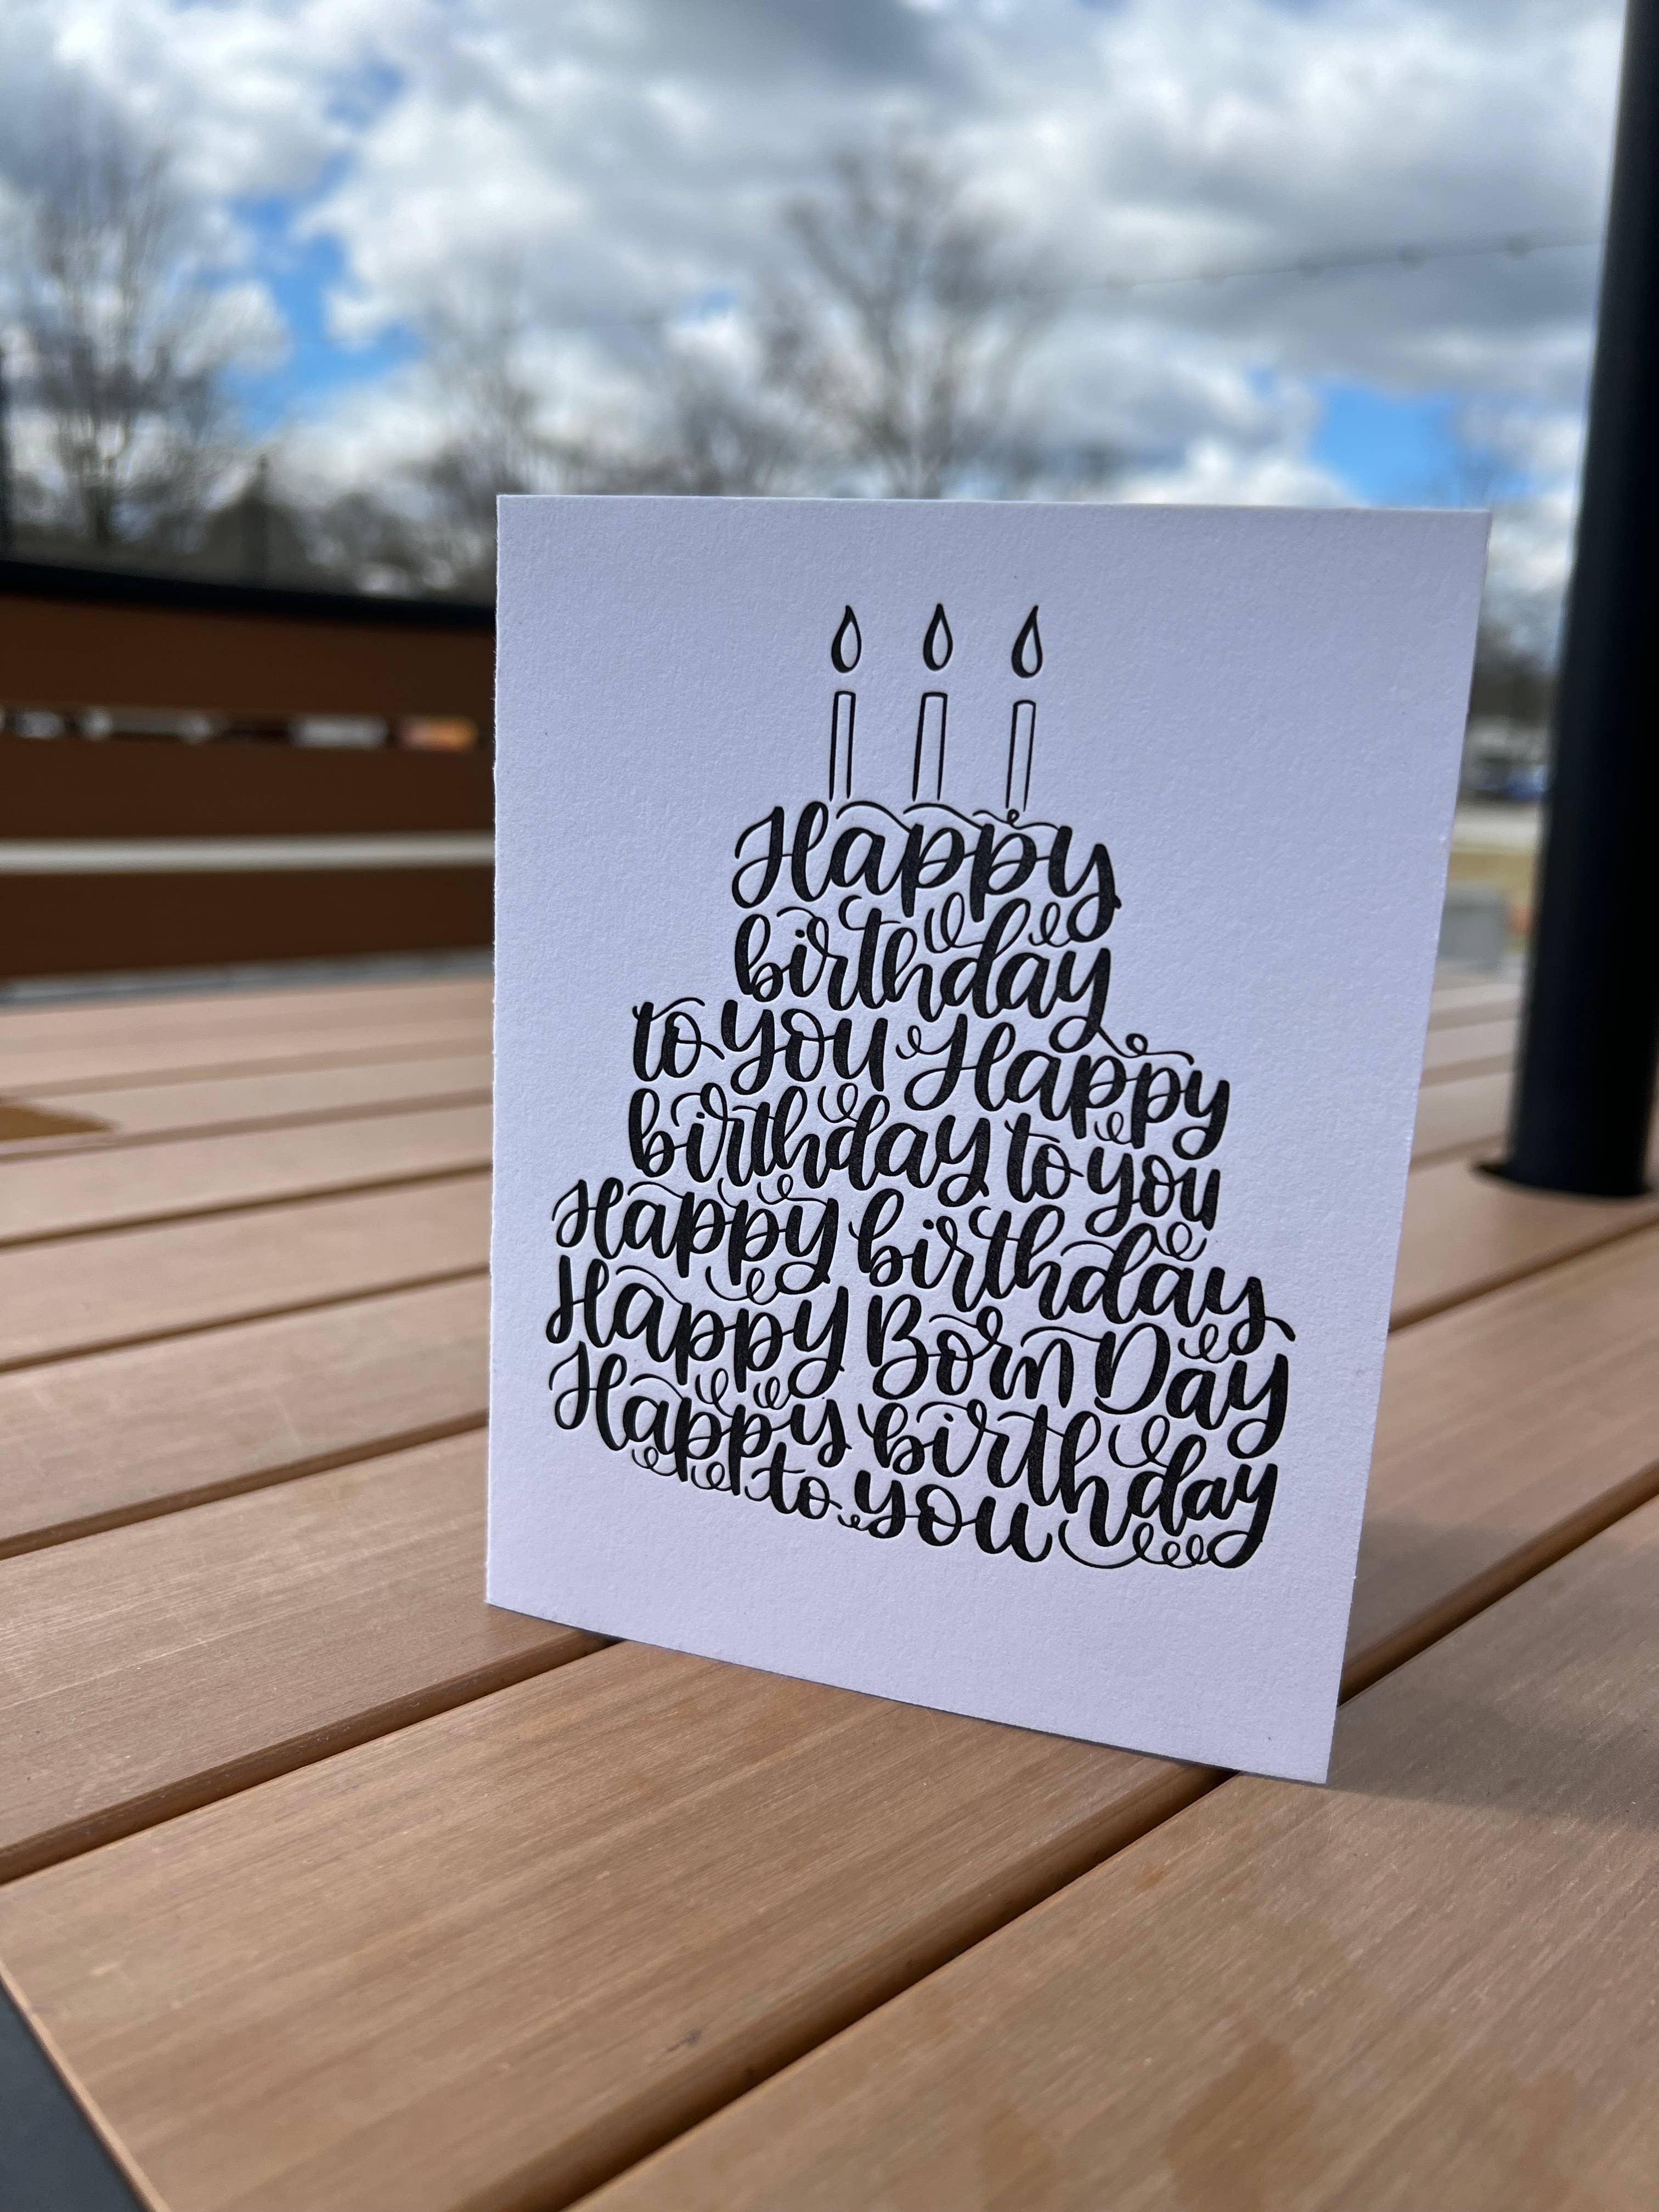 Happy
birthday
to you Happy
birthday to you
Happy birthday
Happy Born Day
Happy birthday
to you